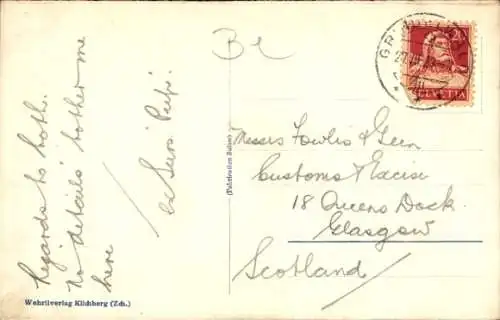 Regards to both.
no details bother me
here
Be
HELVETIA
(Fabrication Suisse)
Messrs Fowlis &
Customs & Excise
18 Queens Dock.
Glasgow
Scotland
Wehrliverlag Kilchberg (Zch.)